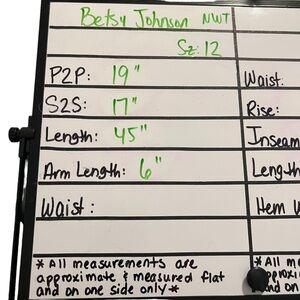 Betsy Johnson NWT
Sz: 12
P2P: 19"
S2S: 17"
Length: 45"
Arm Length: 6"
Waist:
* All measurements are
approximate & measured flat
and on one side only *
Waist:
Rise:
Inseam
Length
Hem
* All me
approxi
and on